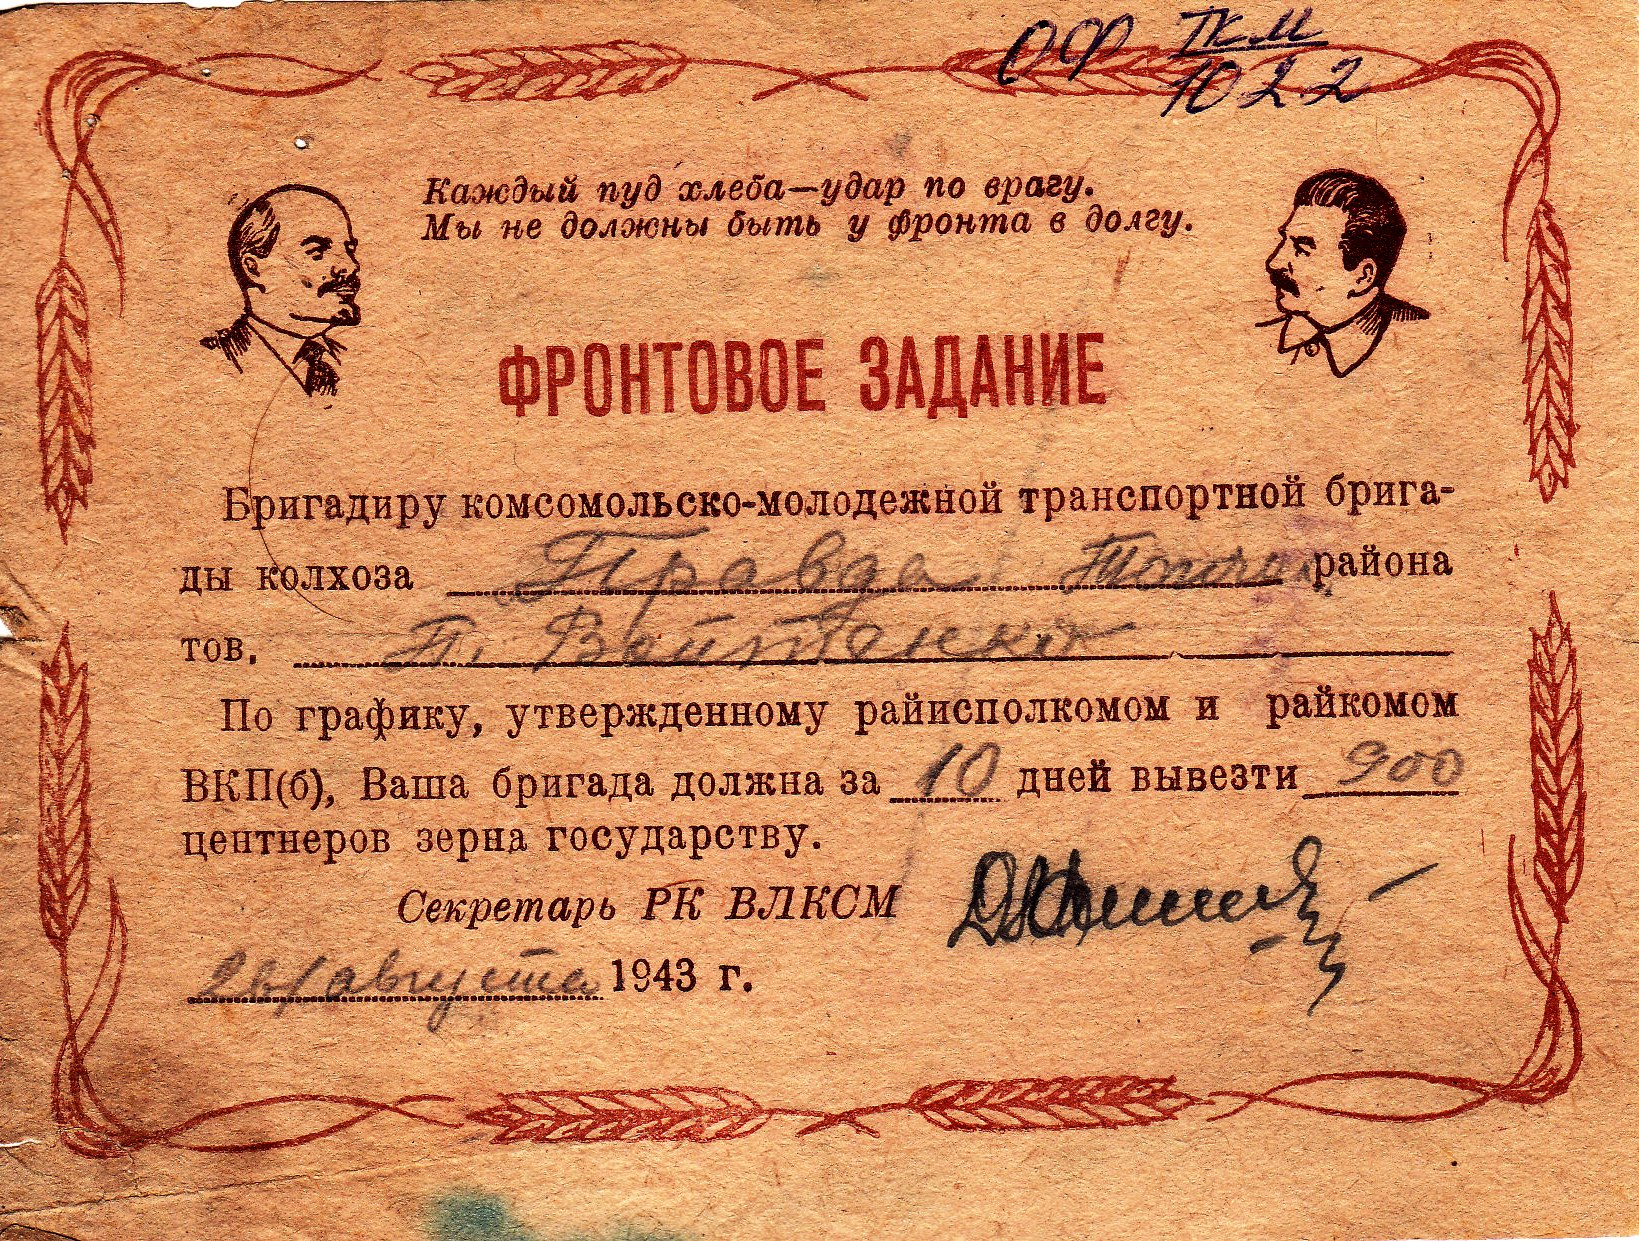 ОФ ТКМ
1022
Каждый пуд хлеба—удар по врагу.
Мы не должны быть у фронта в долгу.
ФРОНТОВОЕ ЗАДАНИЕ
Бригадиру комсомольско-молодежной транспортной брига-
ды колхоза Правда района
тов. Т. Войтенко
По графику, утвержденному райисполкомом и райкомом
ВКП(б), Ваша бригада должна за 10 дней вывезти 900
центнеров зерна государству.
Секретарь РК ВЛКСМ
26/августа 1943 г.